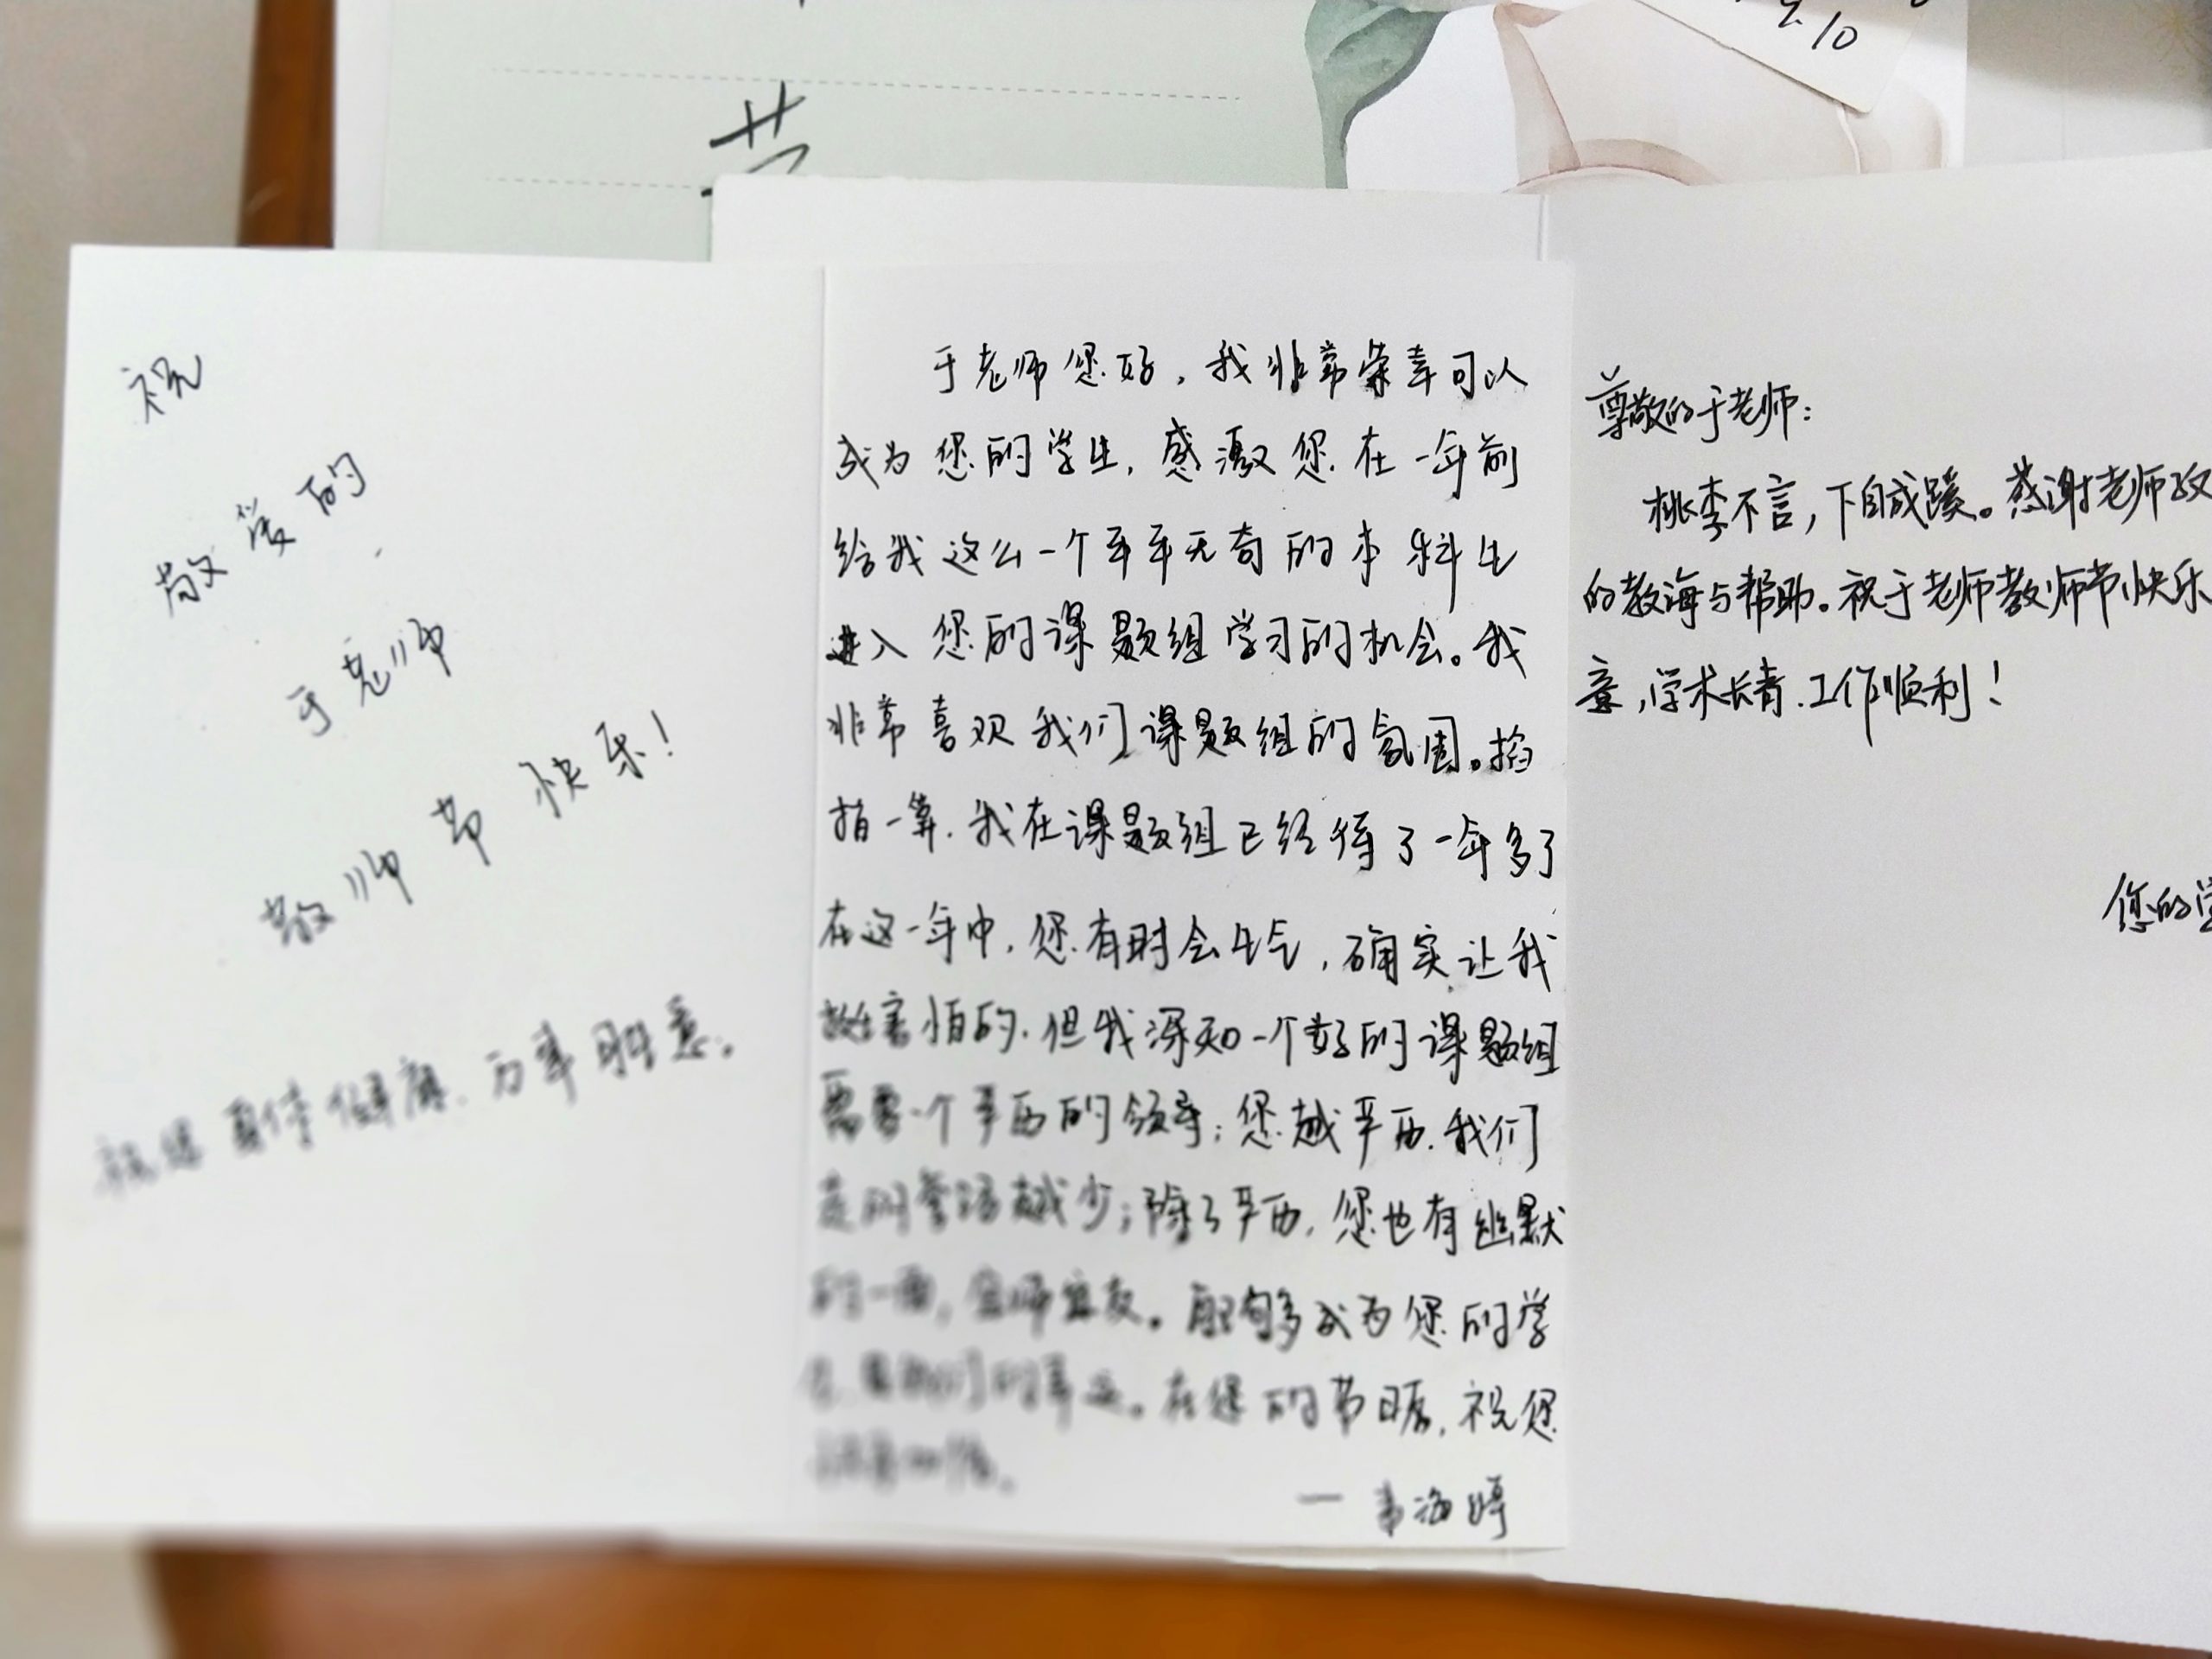 9.10
祝
敬爱的
于老师
教师节快乐！
祝您身体健康，万事胜意。
于老师您好，我非常荣幸可以
成为您的学生，感激您在一年前
给我这么一个平平无奇的本科生
进入您的课题组学习的机会。我
非常喜欢我们课题组的氛围。掐
指一算，我在课题组已经待了一年多了
在这一年中，您有时会生气，确实让我
挺害怕的，但我深知一个好的课题组
需要一个严厉的领导；您越严厉，我们
走的弯路越少；除了严厉，您也有幽默
的一面，亦师亦友。能够成为您的学
生，是我们的幸运。在您的节日里，祝您
— 韦海婷
尊敬的于老师：
桃李不言，下自成蹊。感谢老师
的教诲与帮助。祝于老师教师节快乐
意，学术长青，工作顺利！
您的学